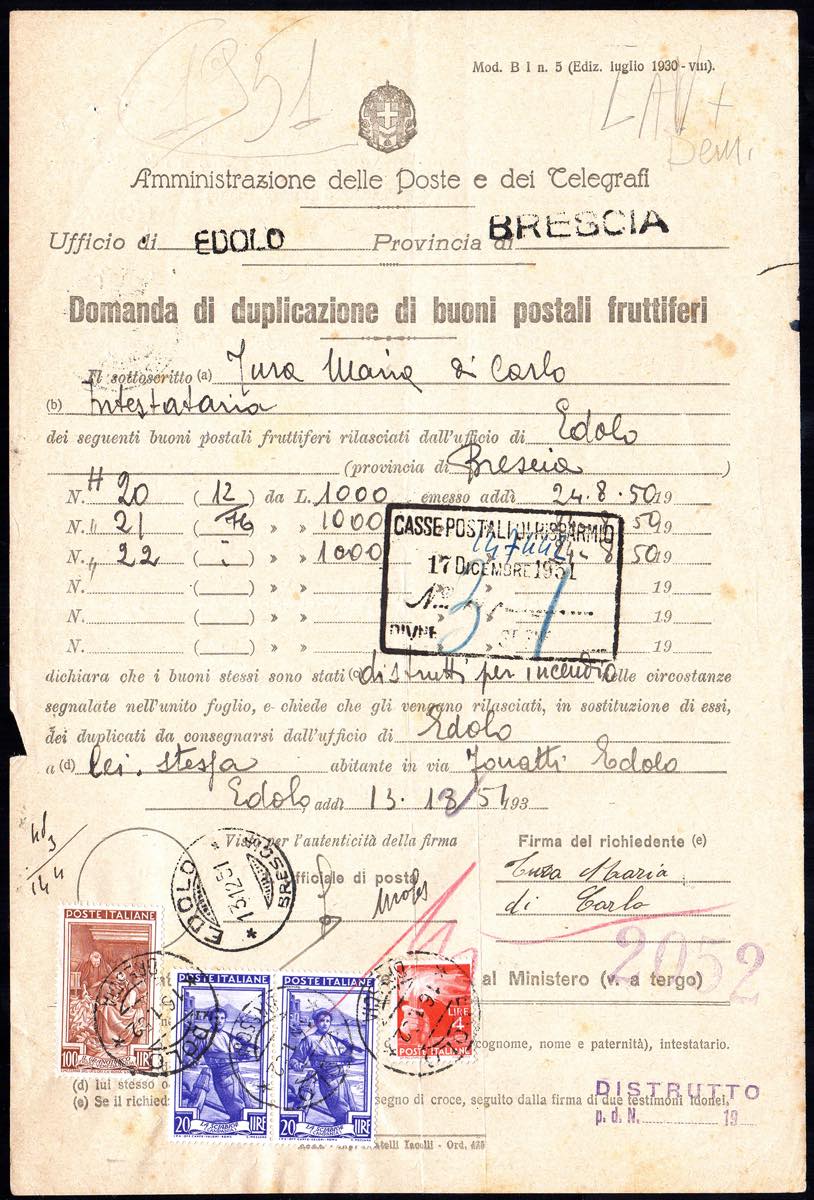 1951
Mod. B I n. 5 (Ediz. luglio 1930 - VIII).
Amministrazione delle Poste e dei Telegrafi
Ufficio di EDOLO Provincia di BRESCIA
Domanda di duplicazione di buoni postali fruttiferi
Il sottoscritto (a) Maria di Carlo
(b) Intestataria
dei seguenti buoni postali fruttiferi rilasciati dall'ufficio di Edolo
(provincia di Brescia)
N. 20 (12) da L. 1000 emesso addì 24.8.50 19
N. " 21 » » 1000 50 19
N. " 22 » » 1000 24-8 50 19
N. » » 19
N. » » 19
N. » » 19
CASSE POSTALI DI RISPARMIO
17 DICEMBRE 1951
N.
dichiara che i buoni stessi sono stati (c) distrutti per incendio nelle circostanze
segnalate nell'unito foglio, e chiede che gli vengano rilasciati, in sostituzione di essi,
dei duplicati da consegnarsi dall'ufficio di Edolo
a (d) lei stessa abitante in via Edolo
Edolo, addì 13. 51 193
Visto per l'autenticità della firma
Firma del richiedente (e)
Ufficiale di posta
Maria
di Carlo
144
EDOLO
BRESCIA
13.12.51
2052
al Ministero (v. a tergo)
POSTE ITALIANE
100 LIRE
POSTE ITALIANE
20 LIRE
LA SCIABICA
POSTE ITALIANE
20 LIRE
LA SCIABICA
LIRE
4
POSTE ITALIANE
cognome, nome e paternità), intestatario.
(d) lui stesso o
(e) Se il richied segno di croce, seguito dalla firma di due testimoni idonei.
DISTRUTTO
p. d. N. 19